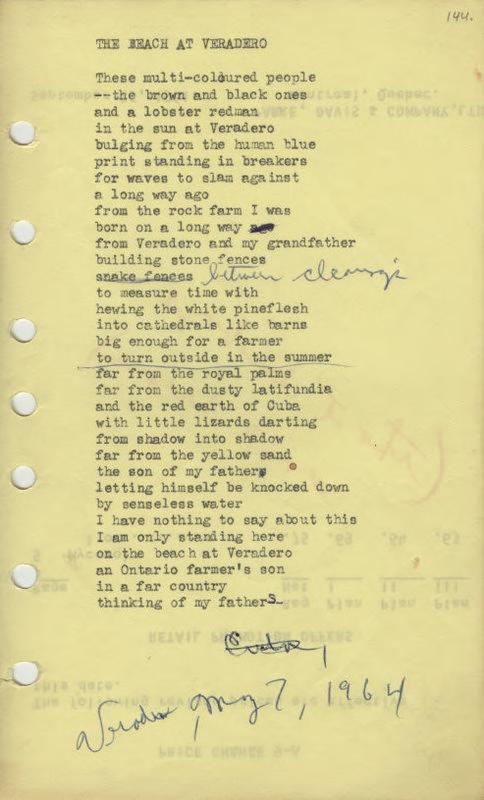 144.
THE BEACH AT VERADERO
These multi-coloured people
--the brown and black ones
and a lobster redman
in the sun at Veradero
bulging from the human blue
print standing in breakers
for waves to slam against
a long way ago
from the rock farm I was
born on a long way
from Veradero and my grandfather
building stone fences
snake fences between clearings
to measure time with
hewing the white pineflesh
into cathedrals like barns
big enough for a farmer
to turn outside in the summer
far from the royal palms
far from the dusty latifundia
and the red earth of Cuba
with little lizards darting
from shadow into shadow
far from the yellow sand
the son of my father
letting himself be knocked down
by senseless water
I have nothing to say about this
I am only standing here
on the beach at Veradero
an Ontario farmer's son
in a far country
thinking of my fathers
May 7, 1964
RETAIL PROMOTION OFFERS
The following revised prices are effective
this date.
PRICE CHANGE 9-A